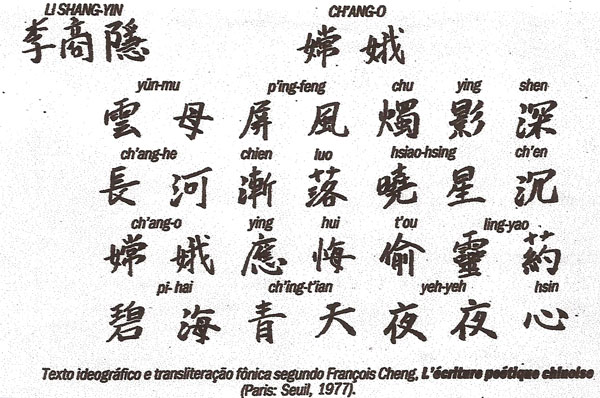 LI SHANG-YIN CH'ANG-O
李商隱 嫦娥
yün-mu p'ing-feng chu ying shen
雲母屏風燭影深
ch'ang-he chien luo hsiao-hsing ch'en
長河漸落曉星沉
ch'ang-o ying hui t'ou ling-yao
嫦娥應悔偷靈葯
pi-hai ch'ing-t'ian yeh-yeh hsin
碧海青天夜夜心
Texto ideográfico e transliteração fônica segundo François Cheng, L'écriture poétique chinoise
(Paris: Seuil, 1977).